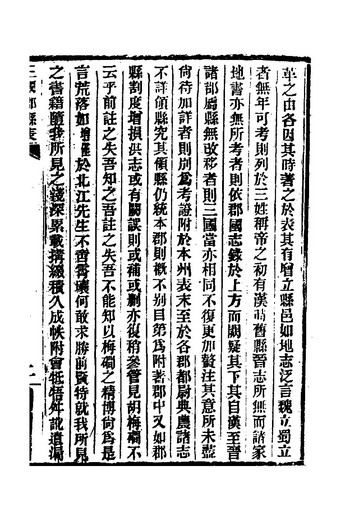 革之由各因其時著之於表其有曾立縣邑如地志泛言魏立蜀立
者無年可考則列於三姓稱帝之初有漢時舊縣晉志所無而諸家
地書亦無所考者則依郡國志錄於上方而闕疑其下其自漢至晉
諸郡屬縣無改移者則三國當亦相同不復更加贅注其意所未盡
尙待加詳者則別為考證附於本州表末至於各郡都尉典農諸志
不詳領縣究其領縣仍統本郡則概不别目第為附著郡中又如郡
縣割度增損洪志或有闕誤則或補或刪亦復稍參管見胡梅磵不
云乎前註之失吾知之吾註之失吾不能知以梅磵之精博尙為是
言荒落如增僅於北江先生不啻霄壤何敢求勝前賢特就我所見
之書籍隨我所見之淺深累載搆綴積久成帙附會牴牾舛訛遺漏
三國郡縣表